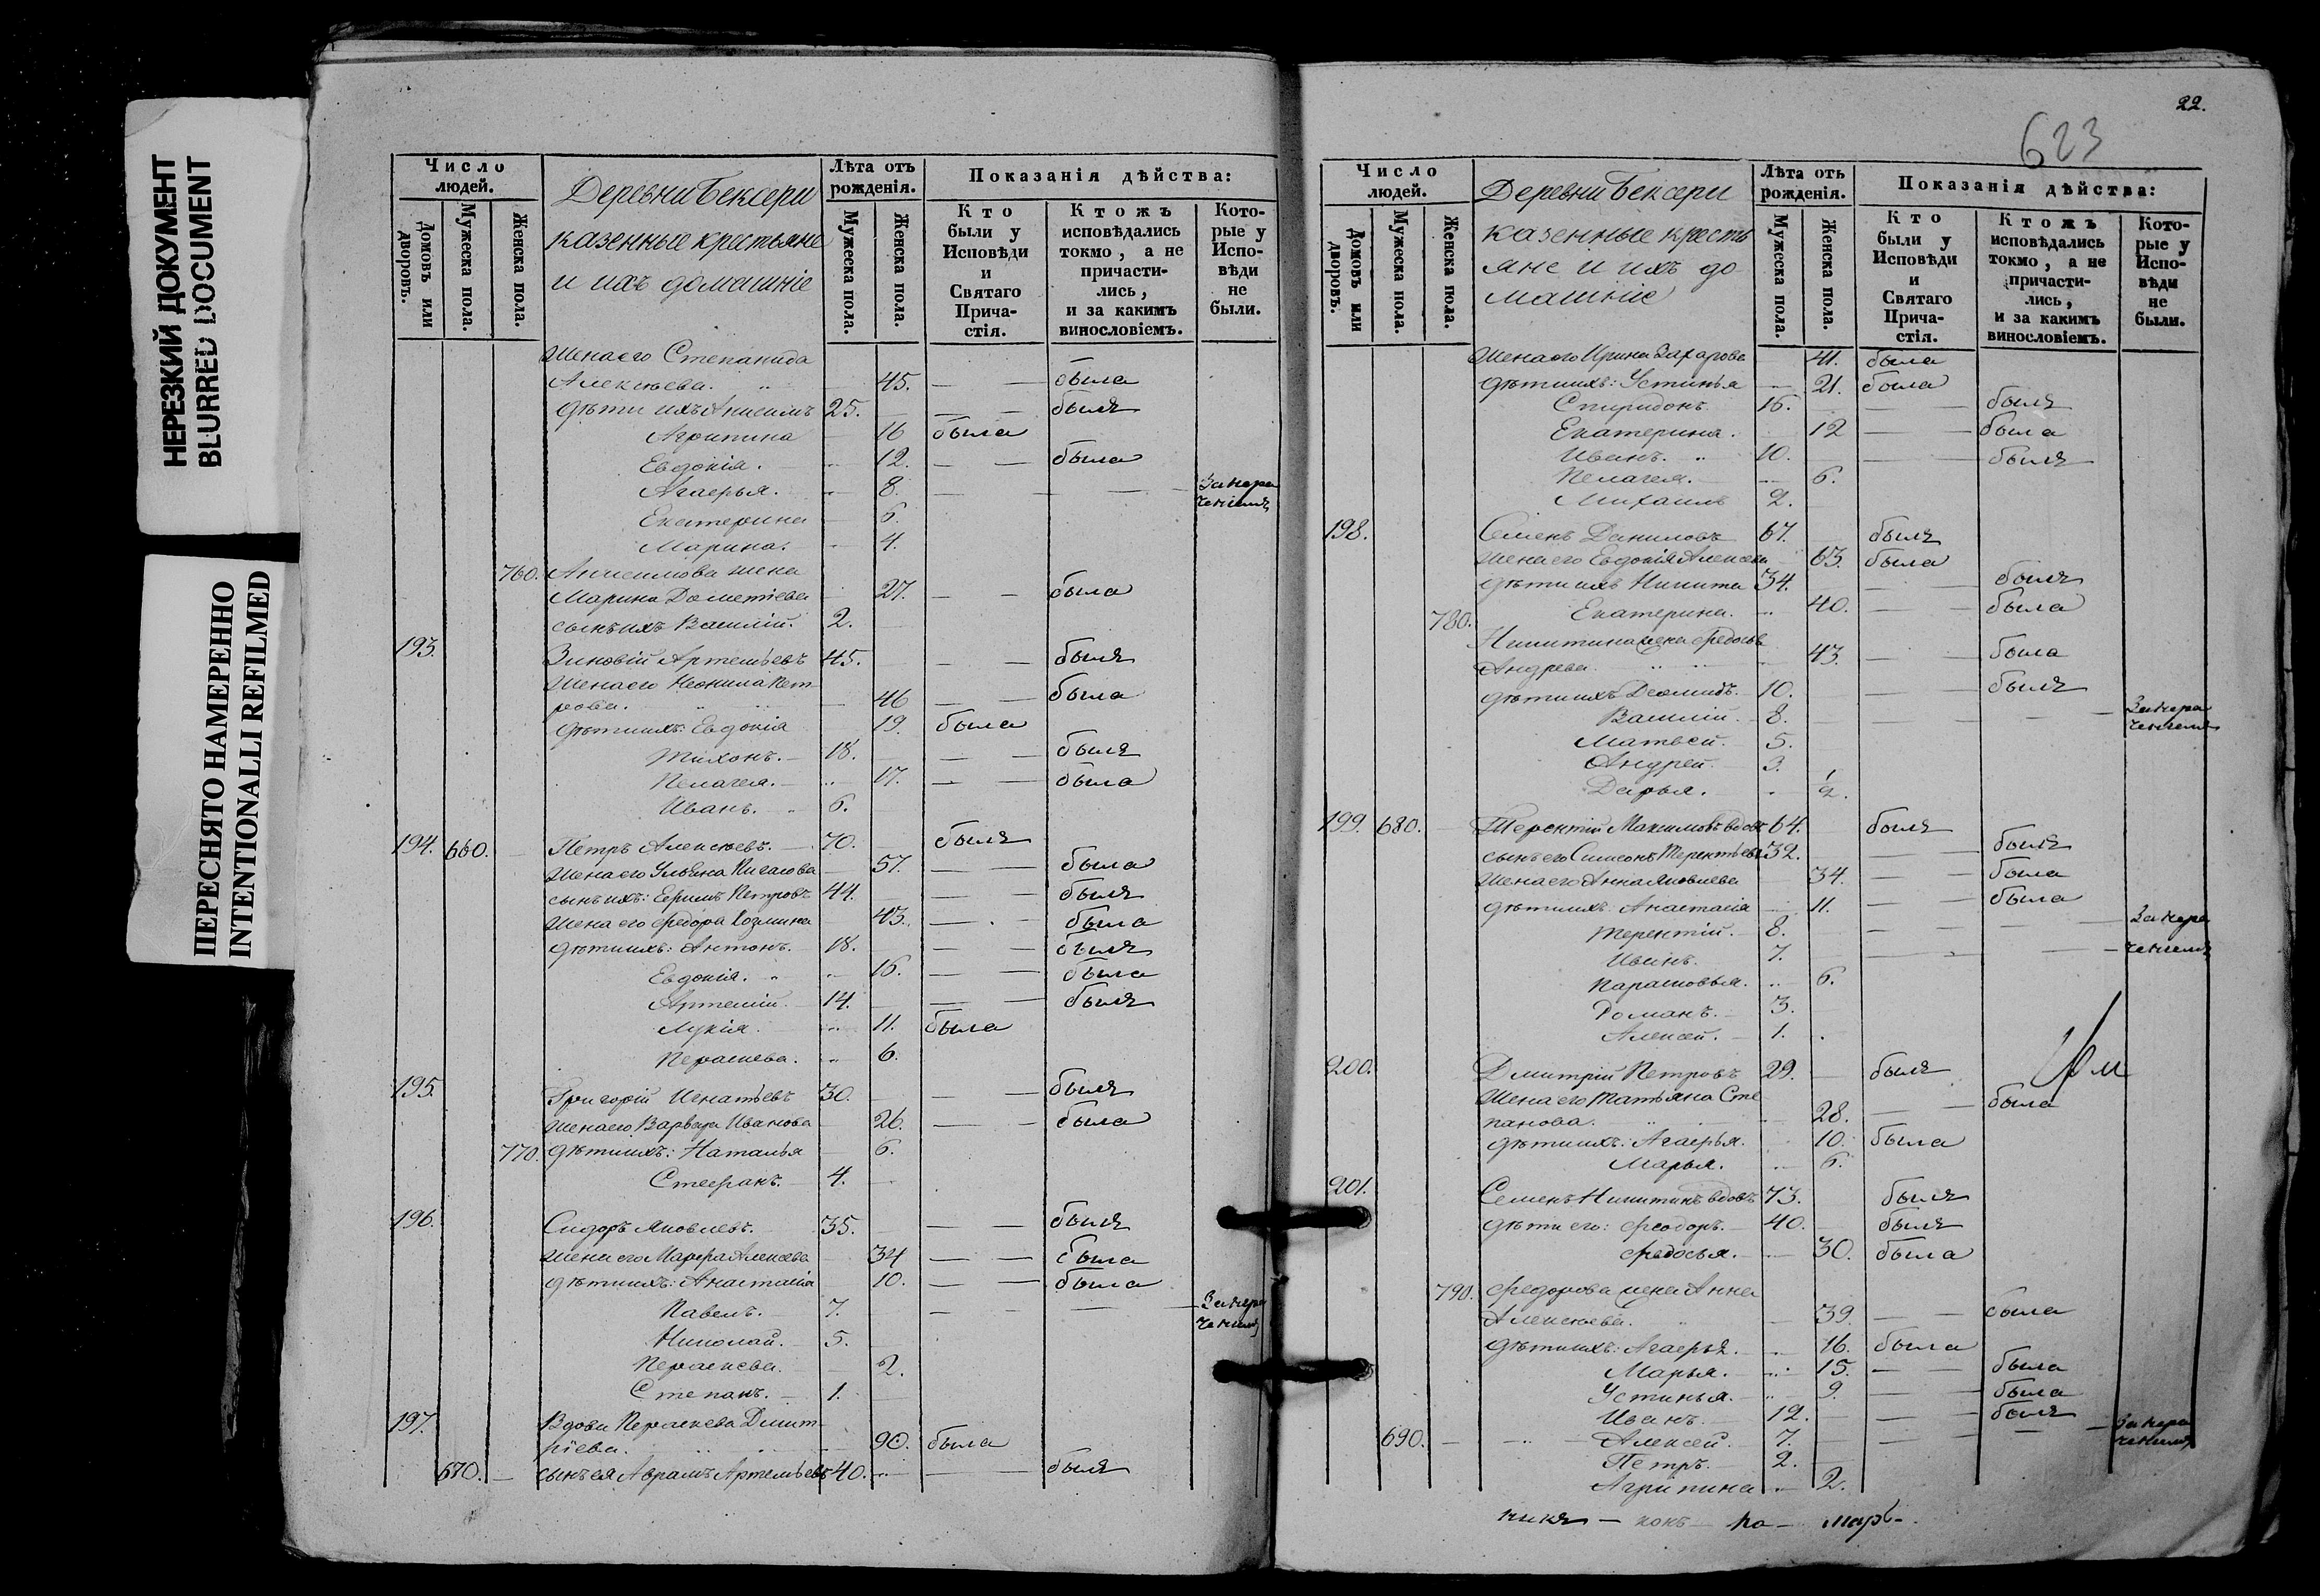 НЕРЕЗКИЙ ДОКУМЕНТ
BLURRED DOCUMENT
ПЕРЕСНЯТО НАМЕРЕННО
INTENTIONALLI REFILMED
Число людей.
Домовъ или дворовъ.
Мужеска пола.
Женска пола.
Деревни Бексери
казенные крестьяне
и ихъ домашніе
Лѣта отъ рожденія.
Мужеска пола.
Женска пола.
Показанія дѣйства:
Кто были у Исповѣди и Святаго Прича-стія.
Ктожъ исповѣдались токмо, а не причасти-лись, и за какимъ винословіемъ.
Кото-рые у Испо-вѣди не были.
Жена его Степанида
Алексѣева. 45. — — была
дѣти ихъ Анисимъ 25. — — — былъ
Агрипина — 16 была
Евдокія. 12. — — была
Агафья. 8. — — — —
Екатерина — 6.
Марина. 4.
760. Анисимова жена
Марина Дометіева 27. — — была
сынъ ихъ Василій. 2.
193. Зиновій Артемьевъ 45. — — — былъ
Жена его Неонила Пет
рова. 46 — — была
дѣти ихъ: Евдокія 19. была
Тихонъ. — 18. — — — былъ
Пелагея. — 17. — — была
Иванъ. 6.
194. 660. — Петръ Алексѣевъ. — 70. былъ
Жена его Ульяна 57. — — была
сынъ ихъ: Ефимъ Петровъ 44. — — — былъ
Жена его Федора Козмина 43. — — была
дѣти ихъ: Антонъ. 18. — — — былъ
Евдокія. 16. — — была
Артемій. 14. — — — былъ
Лукія. 11. была
Параскева. 6.
195. Григорій Игнатьевъ 30. — — — былъ
Жена его Варвара Иванова 26. — — была
770. дѣти ихъ: Наталья 6.
Стефанъ. — 4.
196. Сидоръ Яковлевъ. 35. — — — былъ
Жена его Марфа Алексѣева 34 — — была
дѣти ихъ: Анастасія 10. — — была
Павелъ. 7. — — — —
Николай. 5.
Параскева. 2.
Степанъ. — 1.
197. Вдова Параскева Дмит
ріева. 90. была
670. — сынъ ея Аврамъ Артемьевъ 40. — — былъ
22.
623
Число людей.
Домовъ или дворовъ.
Мужеска пола.
Женска пола.
Деревни Бексери
казенные кресть
яне и ихъ до
машніе
Лѣта отъ рожденія.
Мужеска пола.
Женска пола.
Показанія дѣйства:
Кто были у Исповѣди и Святаго Прича-стія.
Ктожъ исповѣдались токмо, а не причасти-лись, и за какимъ винословіемъ.
Кото-рые у Испо-вѣди не были.
Жена его Ирина Захарова 41. была
дѣти ихъ: Устинья — 21. была
Спиридонъ. 16. — — — былъ
Екатерина. 12 — — была
Иванъ. 10. — — былъ
Пелагея. — 6.
Михаилъ 2.
198. Семенъ Даниловъ 67. былъ
Жена его Евдокія Алексѣева 63. была
дѣти ихъ Никита 34. — — — былъ
780. Екатерина. 40. — — была
Никитина жена Федосья
Андреева. 43. — — была
дѣти ихъ Деомидъ. 10. — — былъ
Василій. 8. — — — —
Матвей. 5.
Андрей. 3.
Дарья. ½.
199. 680. — Терентій Максимовъ вдовъ 64. былъ
сынъ его Симеонъ Терентьевъ 32. — — былъ
Жена его Анна Яковлева 34. — — была
дѣти ихъ: Анастасія 11. — — была
Терентій. 8. — — — —
Иванъ. 7. — — — —
Парасковья. 6.
Романъ. 3.
Алексей. — 1.
200. Дмитрій Петровъ 29. — былъ
Жена его Татьяна Сте
панова. 28. — — была
дѣти ихъ: Агафья. 10. была
Марья. 6.
201. Семенъ Никитинъ вдовъ 73. былъ
дѣти его: Феодоръ. — 40. — былъ
Федосья. — 30. была
790. Федорова жена Анна
Алексѣева. 39. — — была
дѣти ихъ: Агафья. 16. была
Марья. 15. — — была
Устинья. 9. — — была
Иванъ. — 12. — — — былъ
690. — Алексей. 7. — — — —
Петръ. 2. —
Агрипина 2.